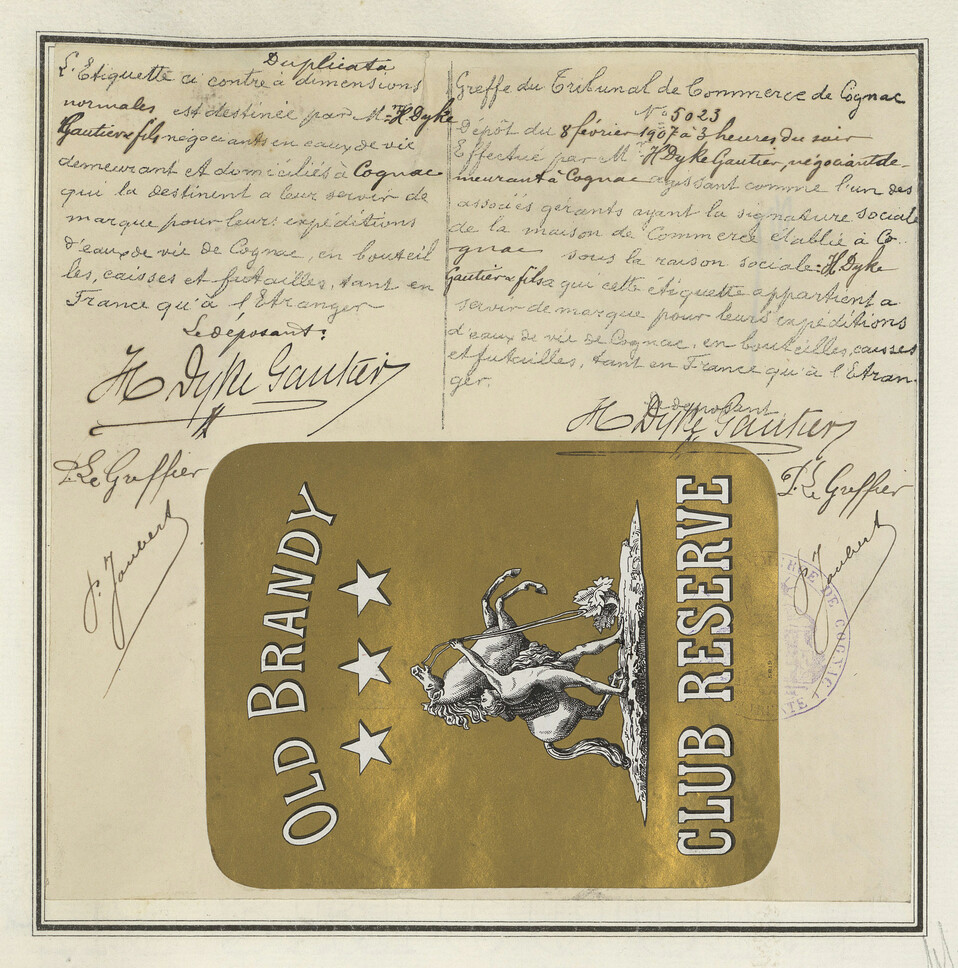 Duplicata
L'Etiquette ci contre à dimensions
normales est destinée par M. H Dyke
Gautier & fils négociants en eaux de vie
demeurant et domiciliés à Cognac
qui la destinent a leur servir de
marque pour leurs expéditions
d'eaux de vie de Cognac, en bouteil
les, caisses et futailles, tant en
France qu'à l'Etranger
Le déposant:
H Dyke Gautier
P. Le Greffier
P. Joubert
Greffe du Tribunal de Commerce de Cognac
No 5023
Dépôt du 8 février 1907 à 3 heures du soir
Effectué par Mr H Dyke Gautier, négociant de-
meurant à Cognac agissant comme l'un des
associés gérants ayant la signature sociale
de la maison de Commerce établie à Co-
gnac sous la raison sociale: H Dyke
Gautier & fils a qui cette étiquette appartient a
servir de marque pour leurs expéditions
d'eaux de vie de Cognac, en bouteilles, caisses
et futailles, tant en France qu'à l'Etran-
ger.
Le déposant
H Dyke Gautier
P. Le Greffier
P. Joubert
OLD BRANDY
CLUB RESERVE
DE COGNAC